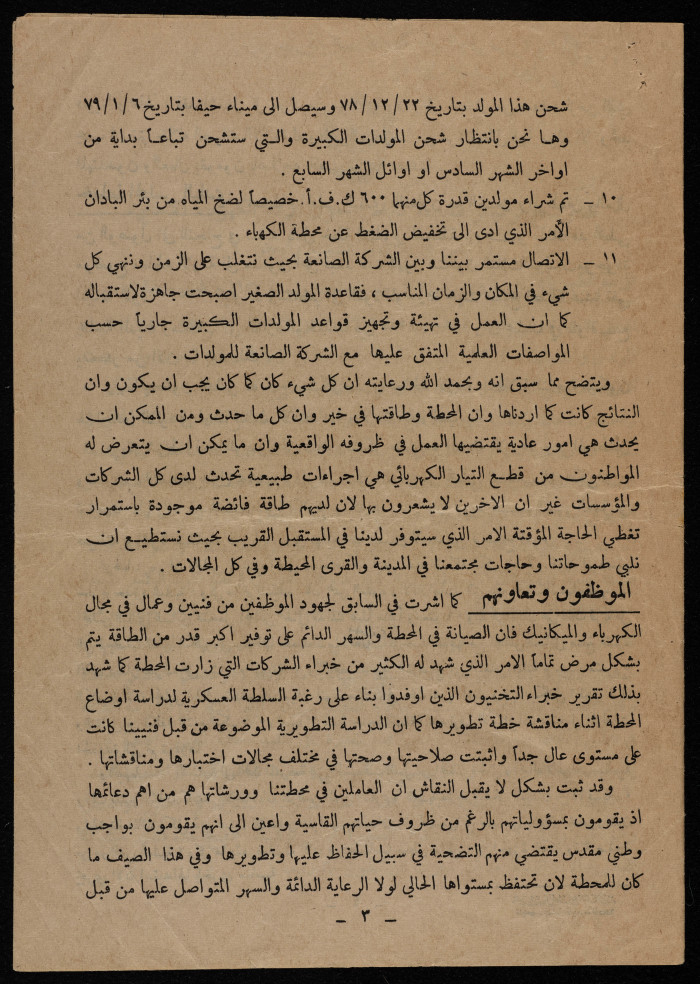 شحن هذا المولد بتاريخ ٢٢/١٢/٧٨ وسيصل الى ميناء حيفا بتاريخ ٦/١/٧٩
وها نحن بانتظار شحن المولدات الكبيرة والتي ستشحن تباعاً بداية من
اواخر الشهر السادس او اوائل الشهر السابع .
١٠ – تم شراء مولدين قدرة كل منهما ٦٠٠ ك.ف.أ. خصيصاً لضخ المياه من بئر البادان
الأمر الذي ادى الى تخفيض الضغط عن محطة الكهباء .
١١ – الاتصال مستمر بيننا وبين الشركة الصانعة بحيث نتغلب على الزمن وننهي كل
شيء في المكان والزمان المناسب ، فقاعدة المولد الصغير اصبحت جاهزة لاستقباله
كما ان العمل في تهيئة وتجهيز قواعد المولدات الكبيرة جارياً حسب
المواصفات العلمية المتفق عليها مع الشركة الصانعة للمولدات .
ويتضح مما سبق انه وبحمد الله ورعايته ان كل شيء كان كما كان يجب ان يكون وان
النتائج كانت كما اردناها وان المحطة وطاقتها في خير وان كل ما حدث ومن الممكن ان
يحدث هي امور عادية يقتضيها العمل في ظروفه الواقعية وان ما يمكن ان يتعرض له
المواطنون من قطع التيار الكهربائي هي اجراءات طبيعية تحدث لدى كل الشركات
والمؤسسات غير ان الاخرين لا يشعرون بها لان لديهم طاقة فائضة موجودة باستمرار
تغطي الحاجة المؤقتة الامر الذي سيتوفر لدينا في المستقبل القريب بحيث نستطيع ان
نلبي طموحاتنا وحاجات مجتمعنا في المدينة والقرى المحيطة وفي كل المجالات .
الموظفون وتعاونهم كما اشرت في السابق لجهود الموظفين من فنيين وعمال في مجال
الكهرباء والميكانيك فان الصيانة في المحطة والسهر الدائم على توفير اكبر قدر من الطاقة يتم
بشكل مرض تماماً الامر الذي شهد له الكثير من خبراء الشركات التي زارت المحطة كما شهد
بذلك تقرير خبراء التخنيون الذين اوفدوا بناء على رغبة السلطة العسكرية لدراسة اوضاع
المحطة اثناء مناقشة خطة تطويرها كما ان الدراسة التطويرية الموضوعة من قبل فنيينا كانت
على مستوى عال جداً واثبتت صلاحيتها وصحتها في مختلف مجالات اختبارها ومناقشاتها .
وقد ثبت بشكل لا يقبل النقاش ان العاملين في محطتنا وورشاتها هم من اهم دعائمها
اذ يقومون بمسؤولياتهم بالرغم من ظروف حياتهم القاسية واعين الى انهم يقومون بواجب
وطني مقدس يقتضي منهم التضحية في سبيل الحفاظ عليها وتطويرها وفي هذا الصيف ما
كان للمحطة لان تحتفظ بمستواها الحالي لولا الرعاية الدائمة والسهر المتواصل عليها من قبل
– ٣ –